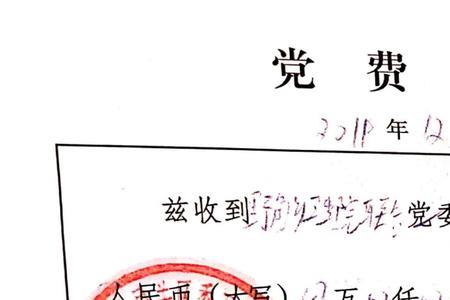 党 费
2018 年 12
兹收到 卫生院联合党委
人民币（大写） 万 仟